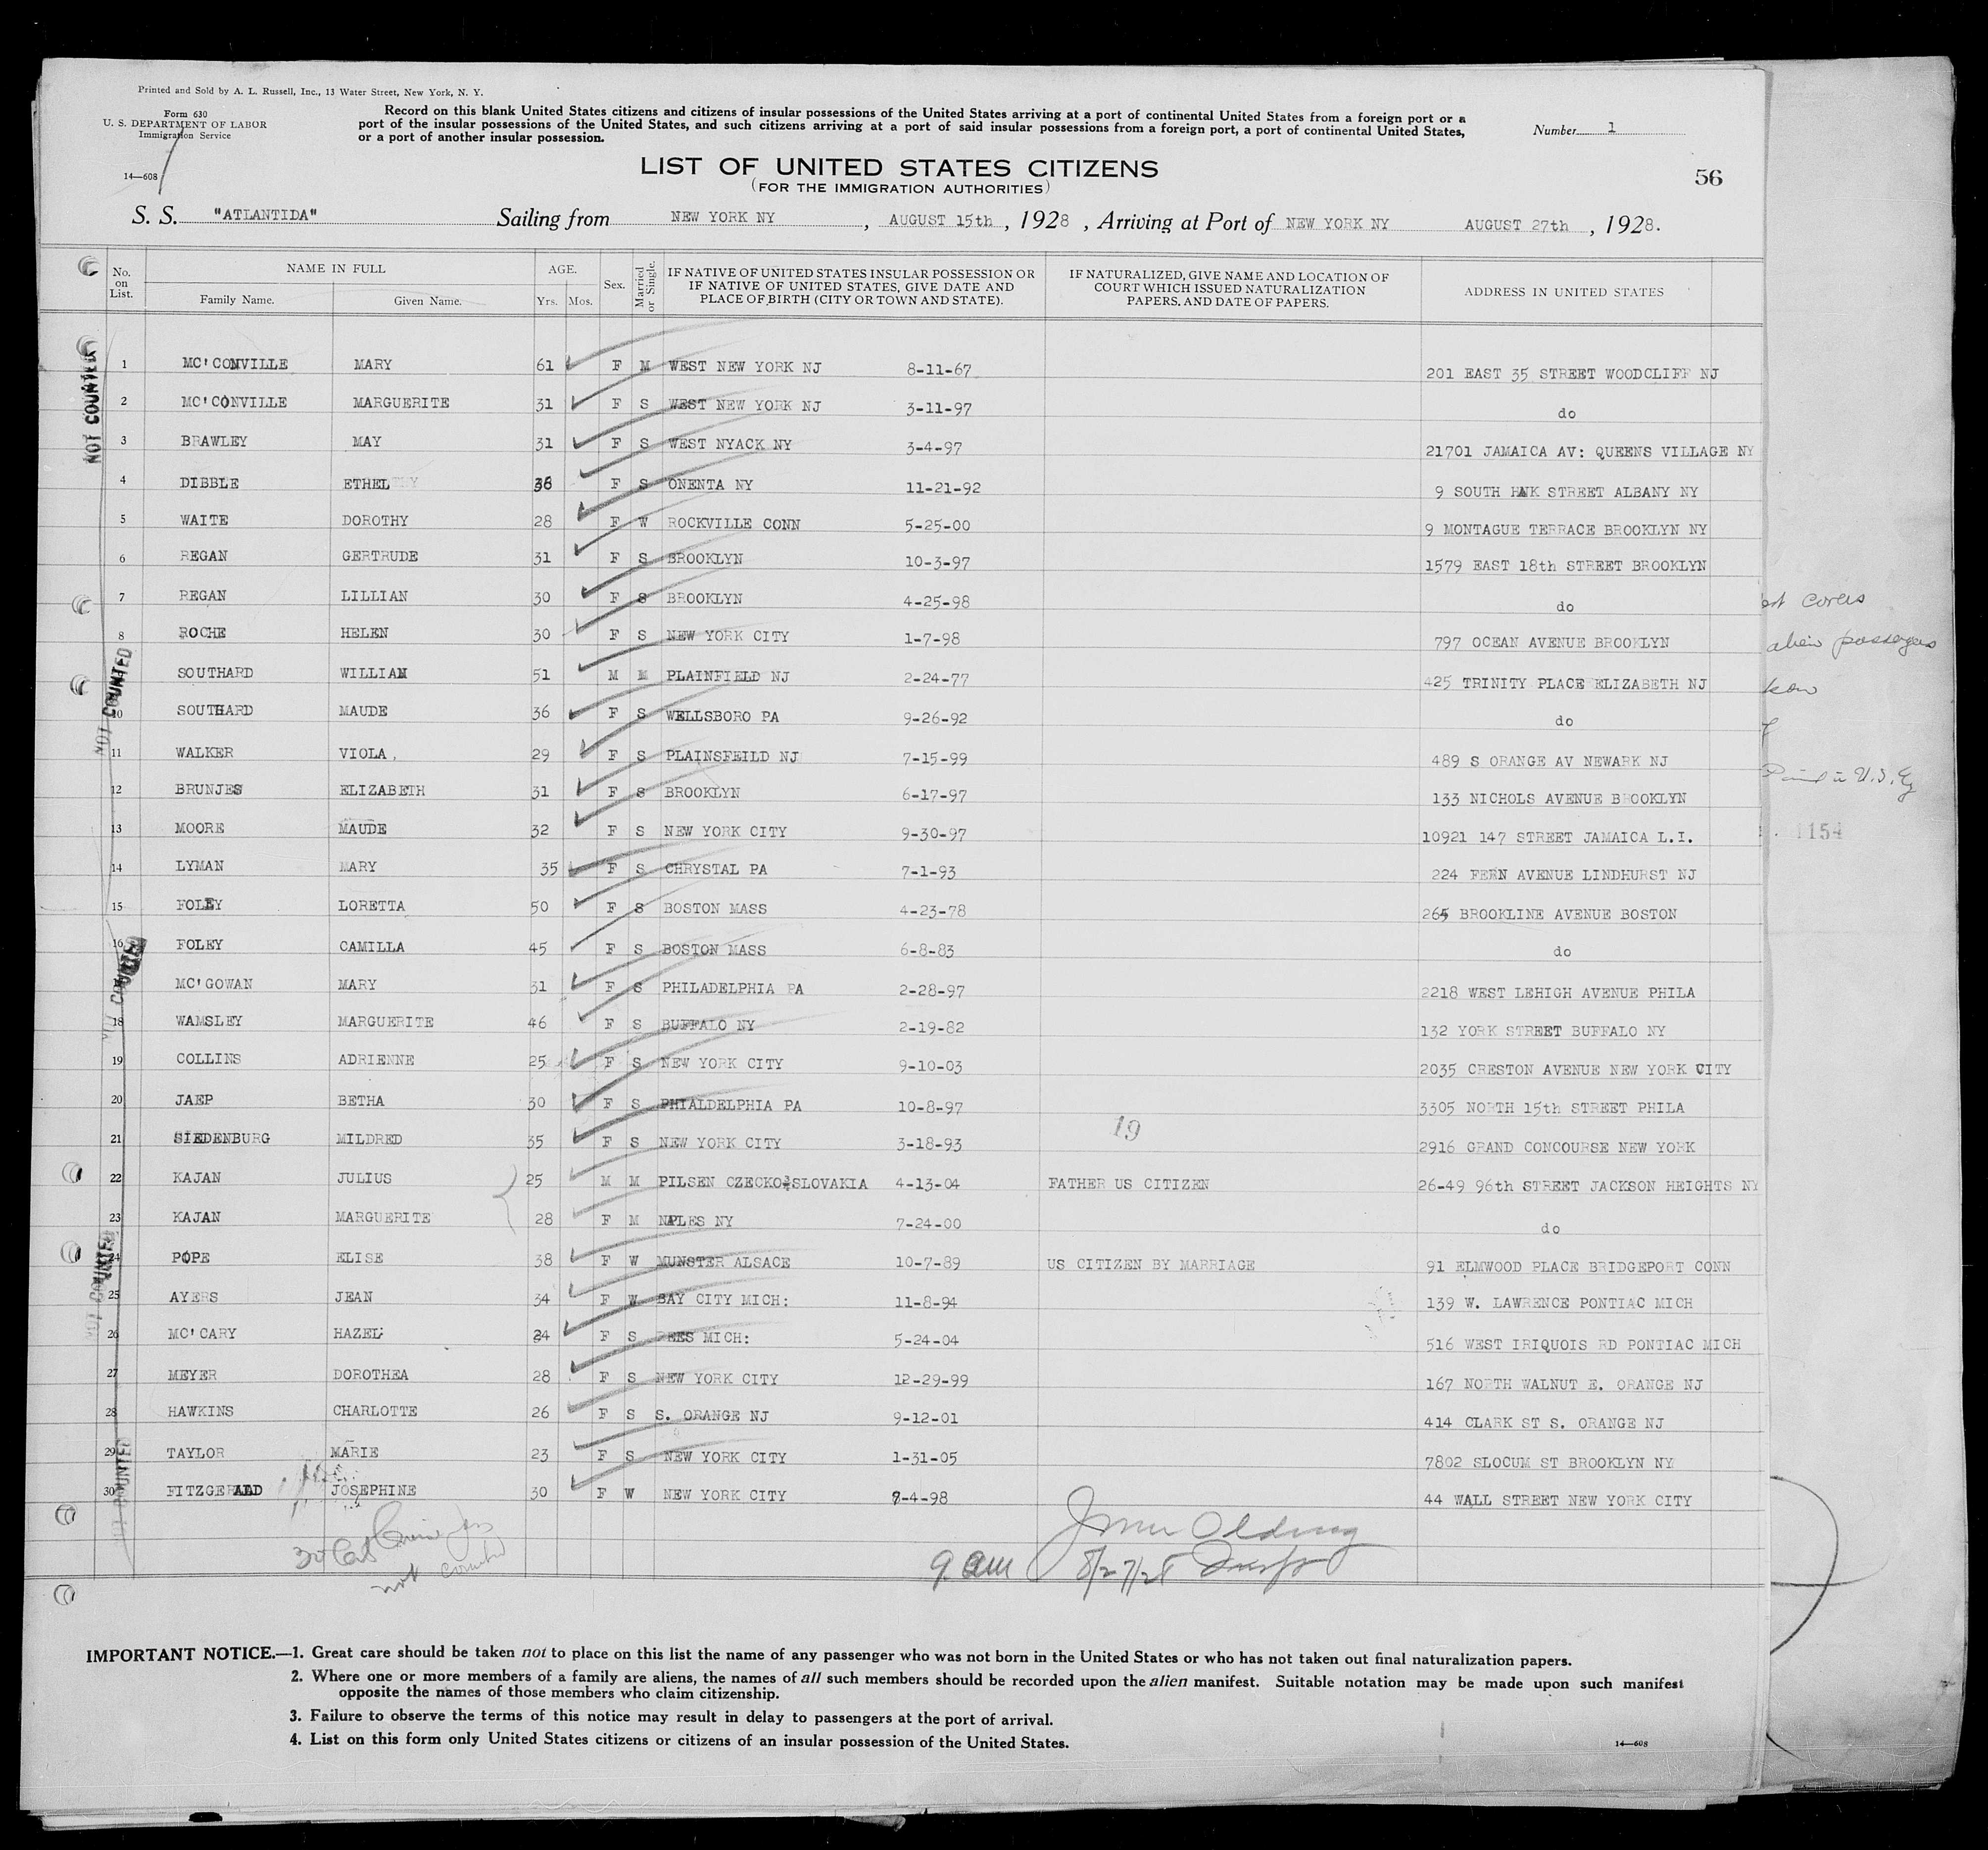 Printed and Sold by A. L. Russell, Inc., 13 Water Street, New York, N. Y.
Form 630
U. S. DEPARTMENT OF LABOR
Immigration Service
14—608
Record on this blank United States citizens and citizens of insular possessions of the United States arriving at a port of continental United States from a foreign port or a
port of the insular possessions of the United States, and such citizens arriving at a port of said insular possessions from a foreign port, a port of continental United States,
or a port of another insular possession.
Number 1
LIST OF UNITED STATES CITIZENS
(FOR THE IMMIGRATION AUTHORITIES)
56
S. S. "ATLANTIDA" Sailing from NEW YORK NY, AUGUST 15th, 1928, Arriving at Port of NEW YORK NY AUGUST 27th, 1928.
No. on List. NAME IN FULL Family Name. Given Name. AGE. Yrs. Mos. Sex. Married or Single. IF NATIVE OF UNITED STATES INSULAR POSSESSION OR IF NATIVE OF UNITED STATES, GIVE DATE AND PLACE OF BIRTH (CITY OR TOWN AND STATE). IF NATURALIZED, GIVE NAME AND LOCATION OF COURT WHICH ISSUED NATURALIZATION PAPERS, AND DATE OF PAPERS. ADDRESS IN UNITED STATES
1 MC'CONVILLE MARY 61 F M WEST NEW YORK NJ 8-11-67 201 EAST 35 STREET WOODCLIFF NJ
2 MC'CONVILLE MARGUERITE 31 F S WEST NEW YORK NJ 3-11-97 do
3 BRAWLEY MAY 31 F S WEST NYACK NY 3-4-97 21701 JAMAICA AV: QUEENS VILLAGE NY
4 DIBBLE ETHEL 36 F S ONENTA NY 11-21-92 9 SOUTH HAWK STREET ALBANY NY
5 WAITE DOROTHY 28 F W ROCKVILLE CONN 5-25-00 9 MONTAGUE TERRACE BROOKLYN NY
6 REGAN GERTRUDE 31 F S BROOKLYN 10-3-97 1579 EAST 18th STREET BROOKLYN
7 REGAN LILLIAN 30 F S BROOKLYN 4-25-98 do
8 ROCHE HELEN 30 F S NEW YORK CITY 1-7-98 797 OCEAN AVENUE BROOKLYN
SOUTHARD WILLIAM 51 M M PLAINFIELD NJ 2-24-77 425 TRINITY PLACE ELIZABETH NJ
10 SOUTHARD MAUDE 36 F S WELLSBORO PA 9-26-92 do
11 WALKER VIOLA, 29 F S PLAINSFEILD NJ 7-15-99 489 S ORANGE AV NEWARK NJ
12 BRUNJES ELIZABETH 31 F S BROOKLYN 6-17-97 133 NICHOLS AVENUE BROOKLYN
13 MOORE MAUDE 32 F S NEW YORK CITY 9-30-97 10921 147 STREET JAMAICA L.I.
14 LYMAN MARY 35 F S CHRYSTAL PA 7-1-93 224 FERN AVENUE LINDHURST NJ
15 FOLEY LORETTA 50 F S BOSTON MASS 4-23-78 265 BROOKLINE AVENUE BOSTON
16 FOLEY CAMILLA 45 F S BOSTON MASS 6-8-83 do
MC'GOWAN MARY 31 F S PHILADELPHIA PA 2-28-97 2218 WEST LEHIGH AVENUE PHILA
18 WAMSLEY MARGUERITE 46 F S BUFFALO NY 2-19-82 132 YORK STREET BUFFALO NY
19 COLLINS ADRIENNE 25 F S NEW YORK CITY 9-10-03 2035 CRESTON AVENUE NEW YORK CITY
20 JAEP BETHA 30 F S PHIALDELPHIA PA 10-8-97 3305 NORTH 15th STREET PHILA
21 SIEDENBURG MILDRED 35 F S NEW YORK CITY 3-18-93 19 2916 GRAND CONCOURSE NEW YORK
22 KAJAN JULIUS 25 M M PILSEN CZECKO-SLOVAKIA 4-13-04 FATHER US CITIZEN 26-49 96th STREET JACKSON HEIGHTS NY
23 KAJAN MARGUERITE 28 F M NAPLES NY 7-24-00 do
24 POPE ELISE 38 F W MUNSTER ALSACE 10-7-89 US CITIZEN BY MARRIAGE 91 ELMWOOD PLACE BRIDGEPORT CONN
25 AYERS JEAN 34 F W BAY CITY MICH: 11-8-94 139 W. LAWRENCE PONTIAC MICH
26 MC'CARY HAZEL 24 F S REES MICH: 5-24-04 516 WEST IRIQUOIS RD PONTIAC MICH
27 MEYER DOROTHEA 28 F S NEW YORK CITY 12-29-99 167 NORTH WALNUT E. ORANGE NJ
28 HAWKINS CHARLOTTE 26 F S S. ORANGE NJ 9-12-01 414 CLARK ST S. ORANGE NJ
29 TAYLOR MARIE 23 F S NEW YORK CITY 1-31-05 7802 SLOCUM ST BROOKLYN NY
30 FITZGERALD JOSEPHINE 30 F W NEW YORK CITY 7-4-98 44 WALL STREET NEW YORK CITY
NOT COUNTED
NOT COUNTED
NOT COUNTED
NOT COUNTED
NOT COUNTED
not counted
9 am 8/27/28
covers
alien passengers
in U.S.
1154
IMPORTANT NOTICE.—1. Great care should be taken not to place on this list the name of any passenger who was not born in the United States or who has not taken out final naturalization papers.
2. Where one or more members of a family are aliens, the names of all such members should be recorded upon the alien manifest. Suitable notation may be made upon such manifest
opposite the names of those members who claim citizenship.
3. Failure to observe the terms of this notice may result in delay to passengers at the port of arrival.
4. List on this form only United States citizens or citizens of an insular possession of the United States.
14—608